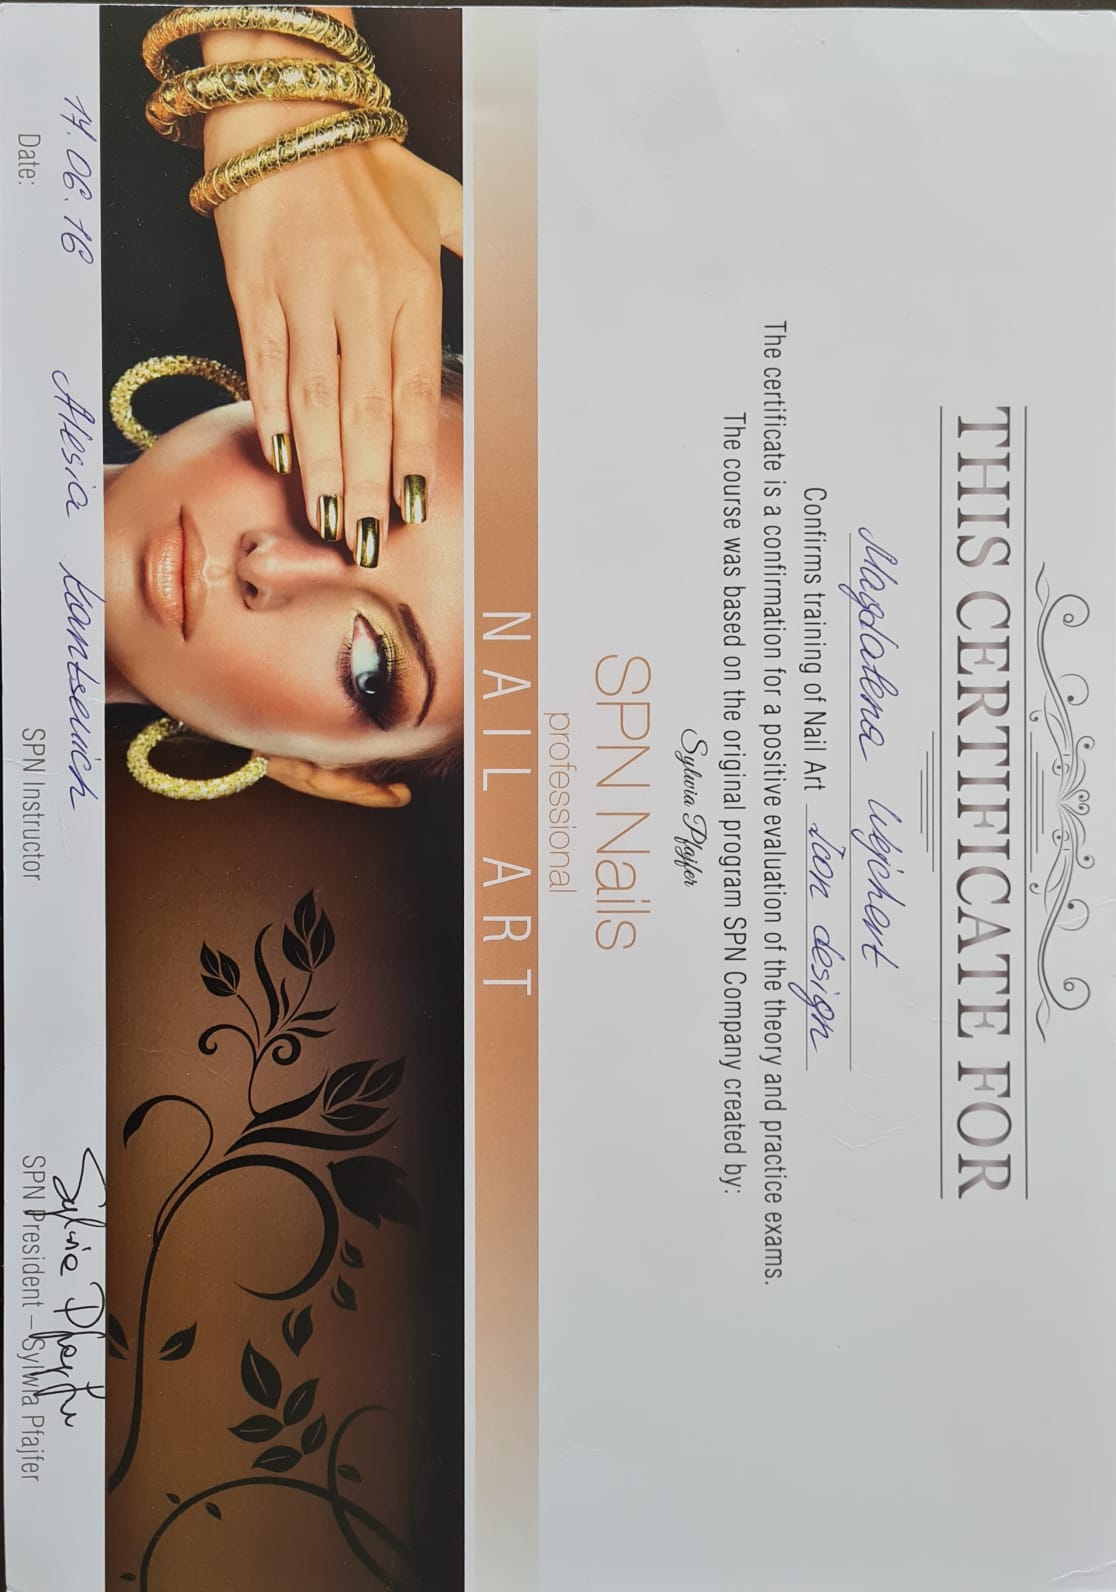 THIS CERTIFICATE FOR
Magdalena Wejchert
Confirms training of Nail Art Icon design
The certificate is a confirmation for a positive evaluation of the theory and practice exams.
The course was based on the original program SPN Company created by:
Sylwia Pfajfer
SPN Nails
professional
NAIL ART
17.06.16 Alesia Kantsevich Sylwia Pfajfer
Date: SPN Instructor SPN President – Sylwia Pfajfer